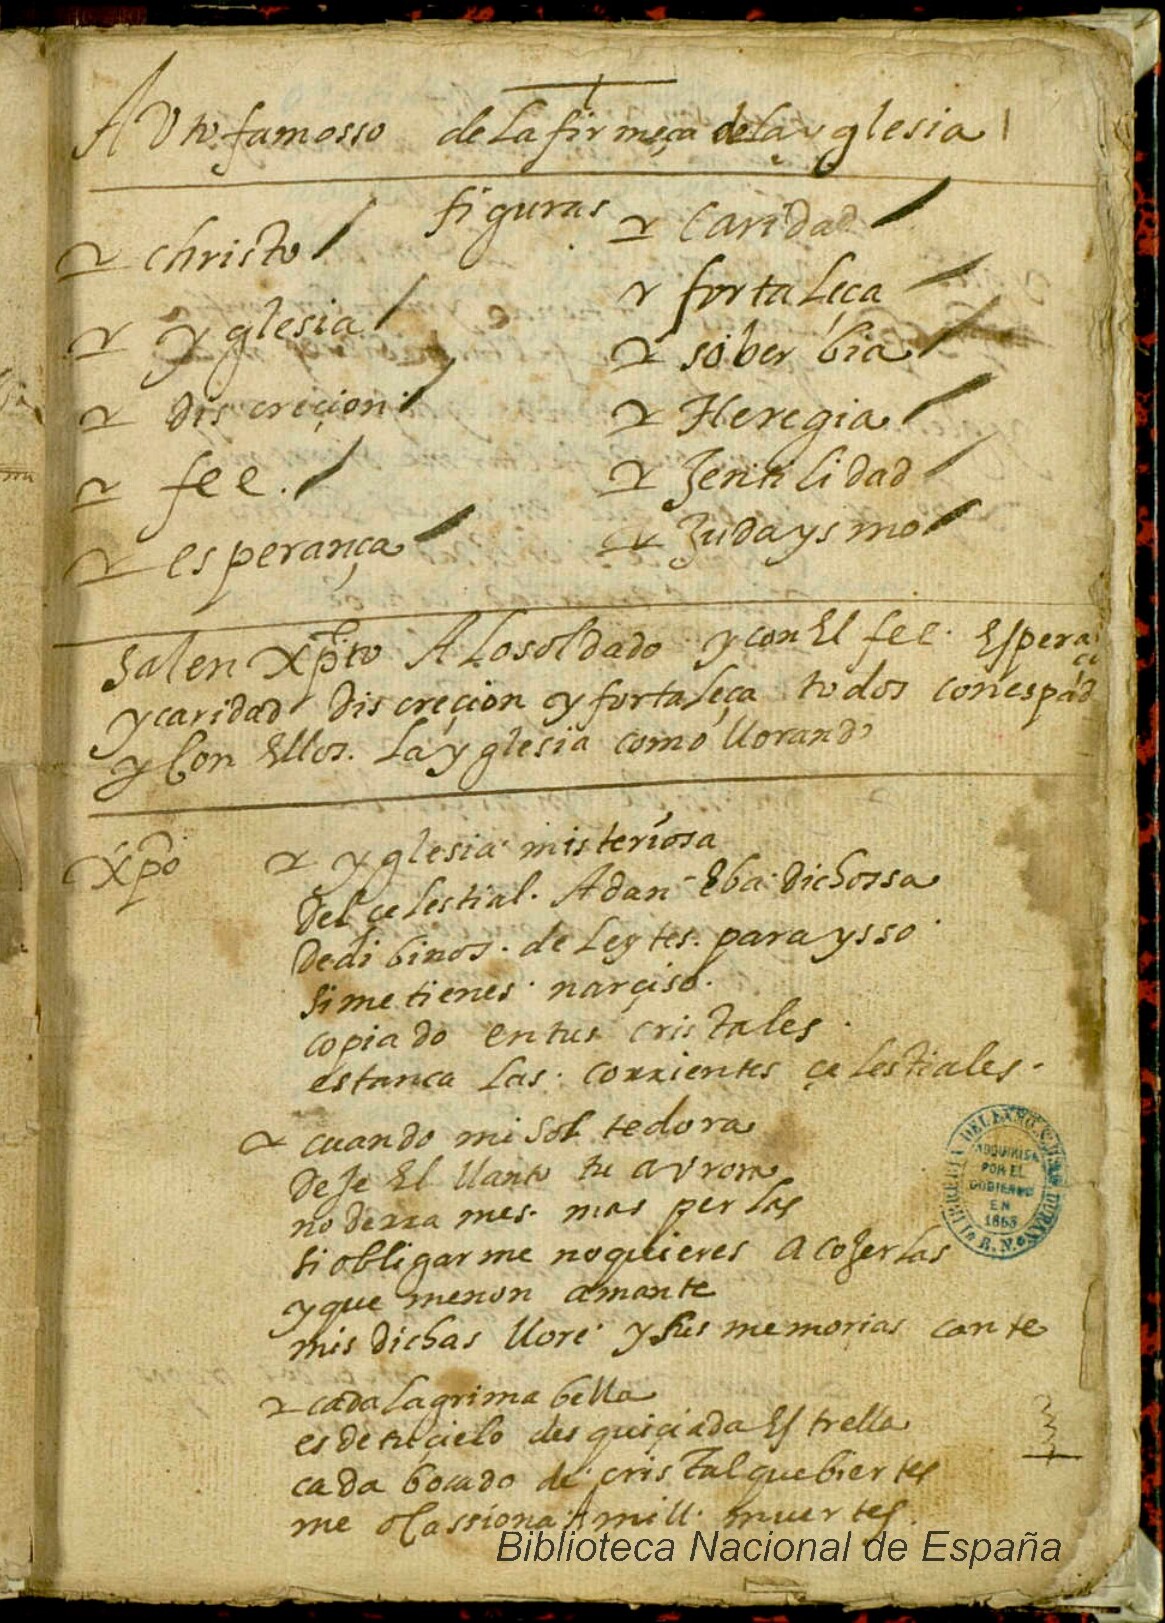 Auto famosso de la firmeça de la yglesia 1
figuras
christo
yglesia
discreçion
fee.
esperança
Caridad
fortaleça
soberbia
Heregia
Jentilidad
Judaysmo
salen Xpto A lo soldado y con El fee. Espera
y caridad discreçion y fortaleça todos con espad
y Con Ellos. La yglesia como llorando
Xpo yglesia misteriosa
Del çelestial. Adan Eba dichossa
De dibinos. deleytes. paraysso
si me tienes narçiso.
copiado en tus cristales
estanca las corrientes çelestiales.
cuando mi sol te dora
deje El llanto tu aurora
no derrames. mas perlas
si obligarme no quieres a cojerlas
y que menon amante
mis dichas llore y sus memorias cante
cada lagrima bella
es de tu çielo desquiçiada Estrella
cada bocado de cristal que biertes
me ocassiona A mill muertes.
LIBRERIA DEL EXMO. S. D. AGUSTIN DURAN
ADQUIRIDA
POR EL
GOBIERNO
EN
1863
B. N.
Biblioteca Nacional de España